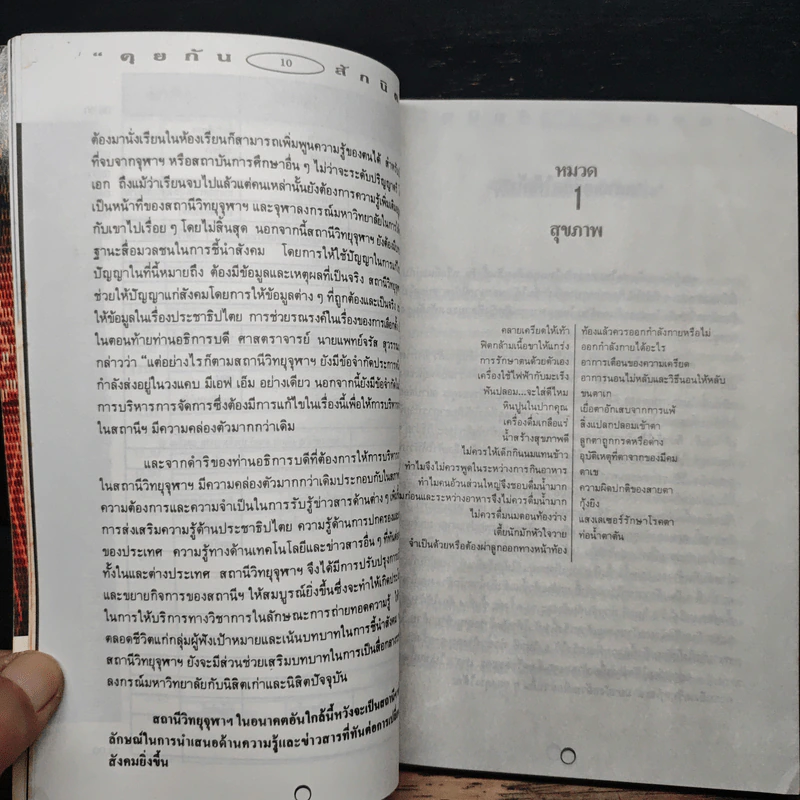 " คุ ย กั น
10
สั ก นิ
ต้องมานั่งเรียนในห้องเรียนก็สามารถเพิ่มพูนความรู้ของตนได้
ที่จบจากจุฬาฯ หรือสถาบันการศึกษาอื่น ๆ ไม่ว่าจะระดับปริญญาตรี
เอก ถึงแม้ว่าเรียนจบไปแล้วแต่คนเหล่านั้นยังต้องการความรู้เพิ่มเติม
เป็นหน้าที่ของสถานีวิทยุจุฬาฯ และจุฬาลงกรณ์มหาวิทยาลัยในการ
กับเขาไปเรื่อย ๆ โดยไม่สิ้นสุด นอกจากนี้สถานีวิทยุจุฬาฯ ยังต้อง
ฐานะสื่อมวลชนในการชี้นำสังคม โดยการให้ใช้ปัญญาในการ
ปัญญาในที่นี้หมายถึง ต้องมีข้อมูลและเหตุผลที่เป็นจริง สถานีวิทยุ
ช่วยให้ปัญญาแก่สังคมโดยการให้ข้อมูลต่าง ๆ ที่ถูกต้องและเป็นจริง
ให้ข้อมูลในเรื่องประชาธิปไตย การช่วยรณรงค์ในเรื่องของการเลือกตั้ง
ในตอนท้ายท่านอธิการบดี ศาสตราจารย์ นายแพทย์จรัส
กล่าวว่า "แต่อย่างไรก็ตามสถานีวิทยุจุฬาฯ ยังมีข้อจำกัดประการ
กำลังส่งอยู่ในวงแคบ มีเอฟ เอ็ม อย่างเดียว นอกจากนี้ยังมีข้อจำกัด
การบริหารการจัดการซึ่งต้องมีการแก้ไขในเรื่องนี้เพื่อให้การบริหาร
ในสถานีฯ มีความคล่องตัวมากกว่าเดิม
และจากดำริของท่านอธิการบดีที่ต้องการให้การบริหาร
ในสถานีวิทยุจุฬาฯ มีความคล่องตัวมากกว่าเดิมประกอบกับใน
ความต้องการและความจำเป็นในการรับรู้ข่าวสารด้านต่าง ๆ
การส่งเสริมความรู้ด้านประชาธิปไตย ความรู้ด้านการปกครอง
ของประเทศ ความรู้ทางด้านเทคโนโลยีและข่าวสารอื่น ๆ ที่
ทั้งในและต่างประเทศ สถานีวิทยุจุฬาฯ จึงได้มีการปรับปรุง
และขยายกิจการของสถานีฯ ให้สมบูรณ์ยิ่งขึ้นซึ่งจะทำให้เกิด
ในการให้บริการทางวิชาการในลักษณะการถ่ายทอดความรู้
ตลอดชีวิตแก่กลุ่มผู้ฟังเป้าหมายและเน้นบทบาทในการชี้นำสังคม
สถานีวิทยุจุฬาฯ ยังจะมีส่วนช่วยเสริมบทบาทในการเป็นสื่อกลาง
ลงกรณ์มหาวิทยาลัยกับนิสิตเก่าและนิสิตปัจจุบัน
สถานีวิทยุจุฬาฯ ในอนาคตอันใกล้นี้หวังจะเป็นสถานี
ลักษณ์ในการนำเสนอด้านความรู้และข่าวสารที่ทันต่อการ
สังคมยิ่งขึ้น
หมวด
1
สุขภาพ
คลายเครียดให้เท้า
ฟิตกล้ามเนื้อขาให้แกร่ง
การรักษาตนด้วยตัวเอง
เครื่องใช้ไฟฟ้ากับมะเร็ง
ฟันปลอม...จะใส่ดีไหม
หินปูนในปากคุณ
เครื่องดื่มเกลือแร่
น้ำสร้างสุขภาพดี
ไม่ควรให้เด็กกินนมแทนข้าว
ทำไมจึงไม่ควรพูดในระหว่างการกินอาหาร
ทำไมคนอ้วนส่วนใหญ่จึงชอบดื่มน้ำมาก
ก่อนและระหว่างอาหารจึงไม่ควรดื่มน้ำมาก
ไม่ควรดื่มนมตอนท้องว่าง
เตี้ยนักมักหัวใจวาย
จำเป็นด้วยหรือต้องผ่าลูกออกทางหน้าท้อง
ท้องแล้วควรออกกำลังกายหรือไม่
ออกกำลังกายได้อะไร
อาการเตือนของความเครียด
อาการนอนไม่หลับและวิธีนอนให้หลับ
ขนตาเก
เยื่อตาอักเสบจากการแพ้
สิ่งแปลกปลอมเข้าตา
ลูกตาถูกกรดหรือด่าง
อุบัติเหตุที่ตาจากของมีคม
ตาเข
ความผิดปกติของสายตา
กุ้งยิง
แสงเลเซอร์รักษาโรคตา
ท่อน้ำตาตัน